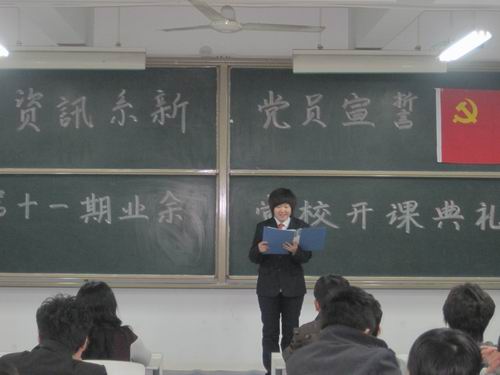 資訊系新 党员宣誓
第十一期业余 党校开课典礼